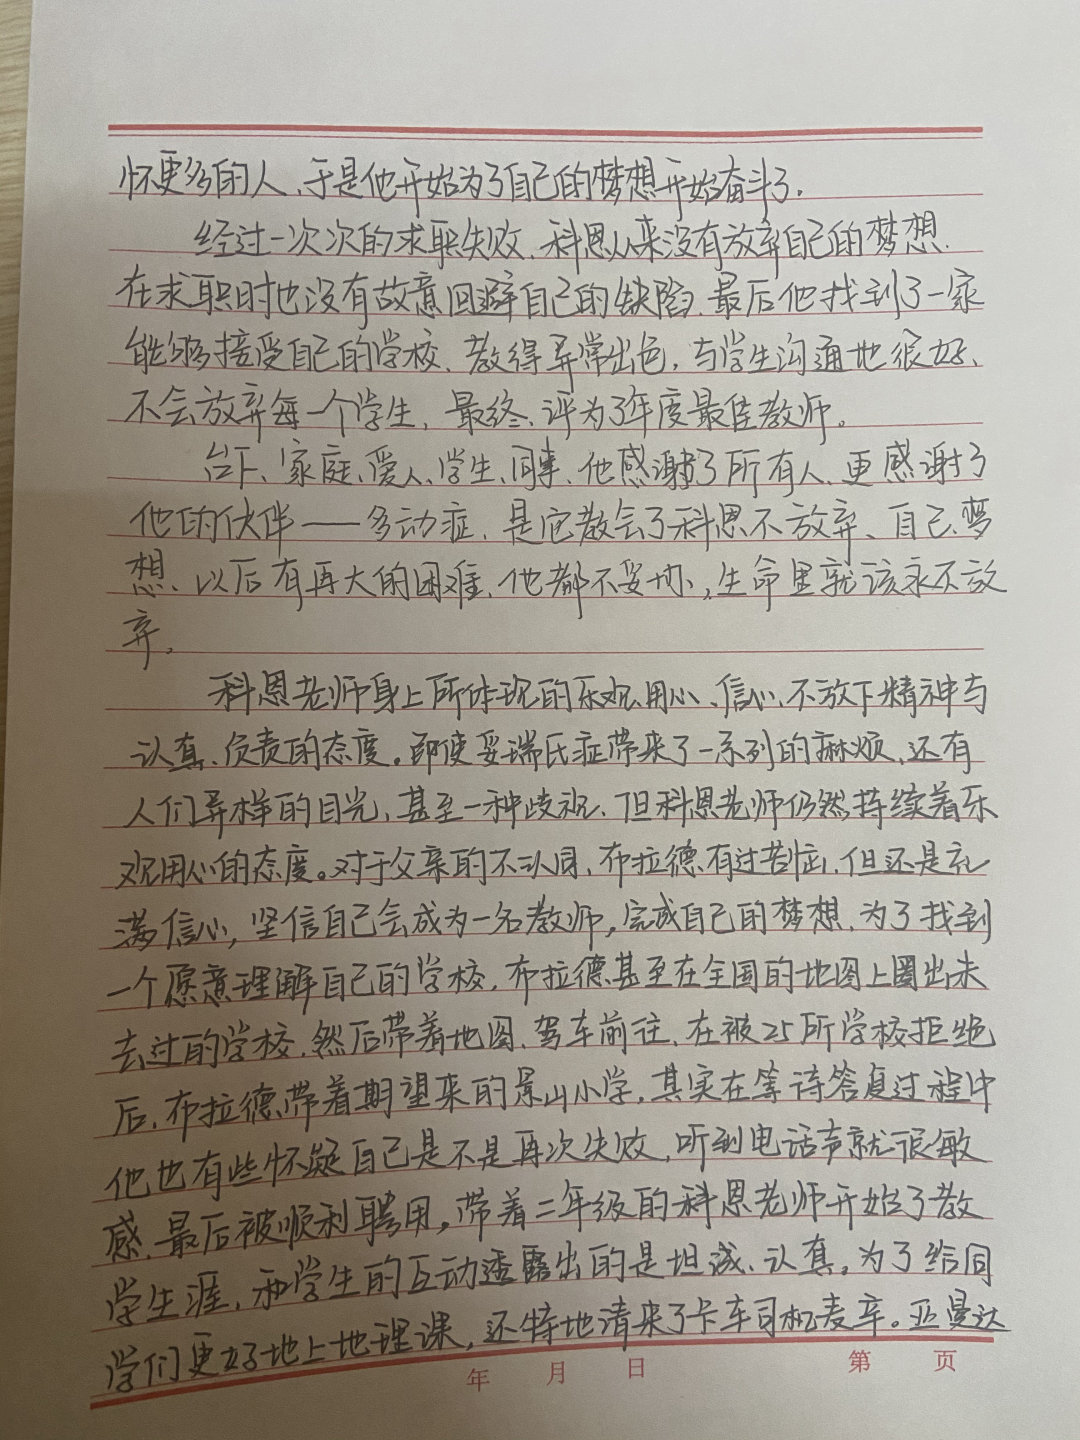 怀更多的人、于是他开始为了自己的梦想开始奋斗了.
经过一次次的求职失败.科恩从来没有放弃自己的梦想.
在求职时也没有故意回避自己的缺陷.最后他找到了一家
能够接受自己的学校.教得异常出色,与学生沟通地很好、
不会放弃每一个学生,最终、评为了年度最佳教师。
台下、家庭、爱人、学生、同事、他感谢了所有人、更感谢了
他的伙伴——多动症.是它教会了科恩不放弃、自己梦
想、以后有再大的困难、他都不妥协,生命里就该永不放
弃。
科恩老师身上所体现的乐观、用心、信心、不放下精神与
认真、负责的态度。即使妥瑞氏症带来了一系列的麻烦、还有
人们异样的目光,甚至一种歧视、但科恩老师仍然持续着乐
观用心的态度。对于父亲的不认同、布拉德有过苦恼、但还是充
满信心,坚信自己会成为一名教师,完成自己的梦想、为了找到
一个愿意理解自己的学校,布拉德甚至在全国的地图上圈出未
去过的学校、然后带着地图、驾车前往、在被25所学校拒绝
后、布拉德带着期望来的景山小学,其实在等待答复过程中
他也有些怀疑自己是不是再次失败,听到电话声就很敏
感、最后被顺利聘用,带着二年级的科恩老师开始了教
学生涯、和学生的互动透露出的是坦诚、认真。为了给同
学们更好地上地理课,还特地请来了卡车司机麦辛。亚曼达
年 月 日 第 页